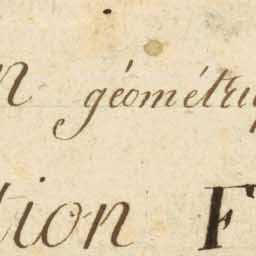 n géométri
tion F